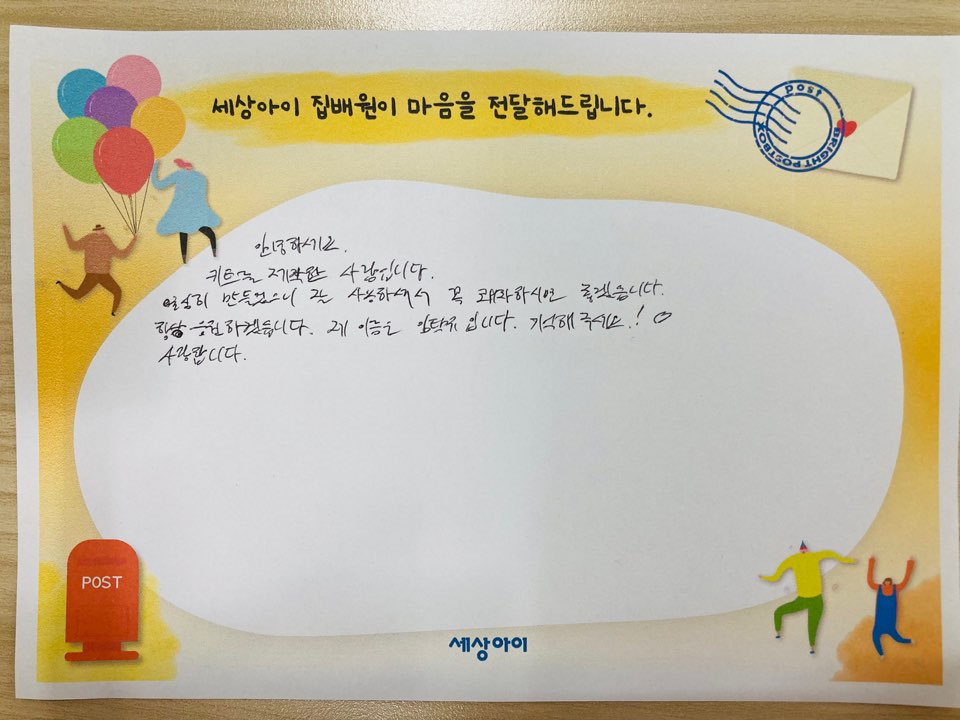 세상아이 집배원이 마음을 전달해드립니다.
Post
BRIGHT POSTBOX
안녕하세요.
키트를 제작한 사람입니다.
열심히 만들었으니 잘 사용하셔서 꼭 쾌차하시면 좋겠습니다.
항상 응원하겠습니다. 제 이름은 입니다. 기억해주세요.!
사랑합니다.
POST
세상아이